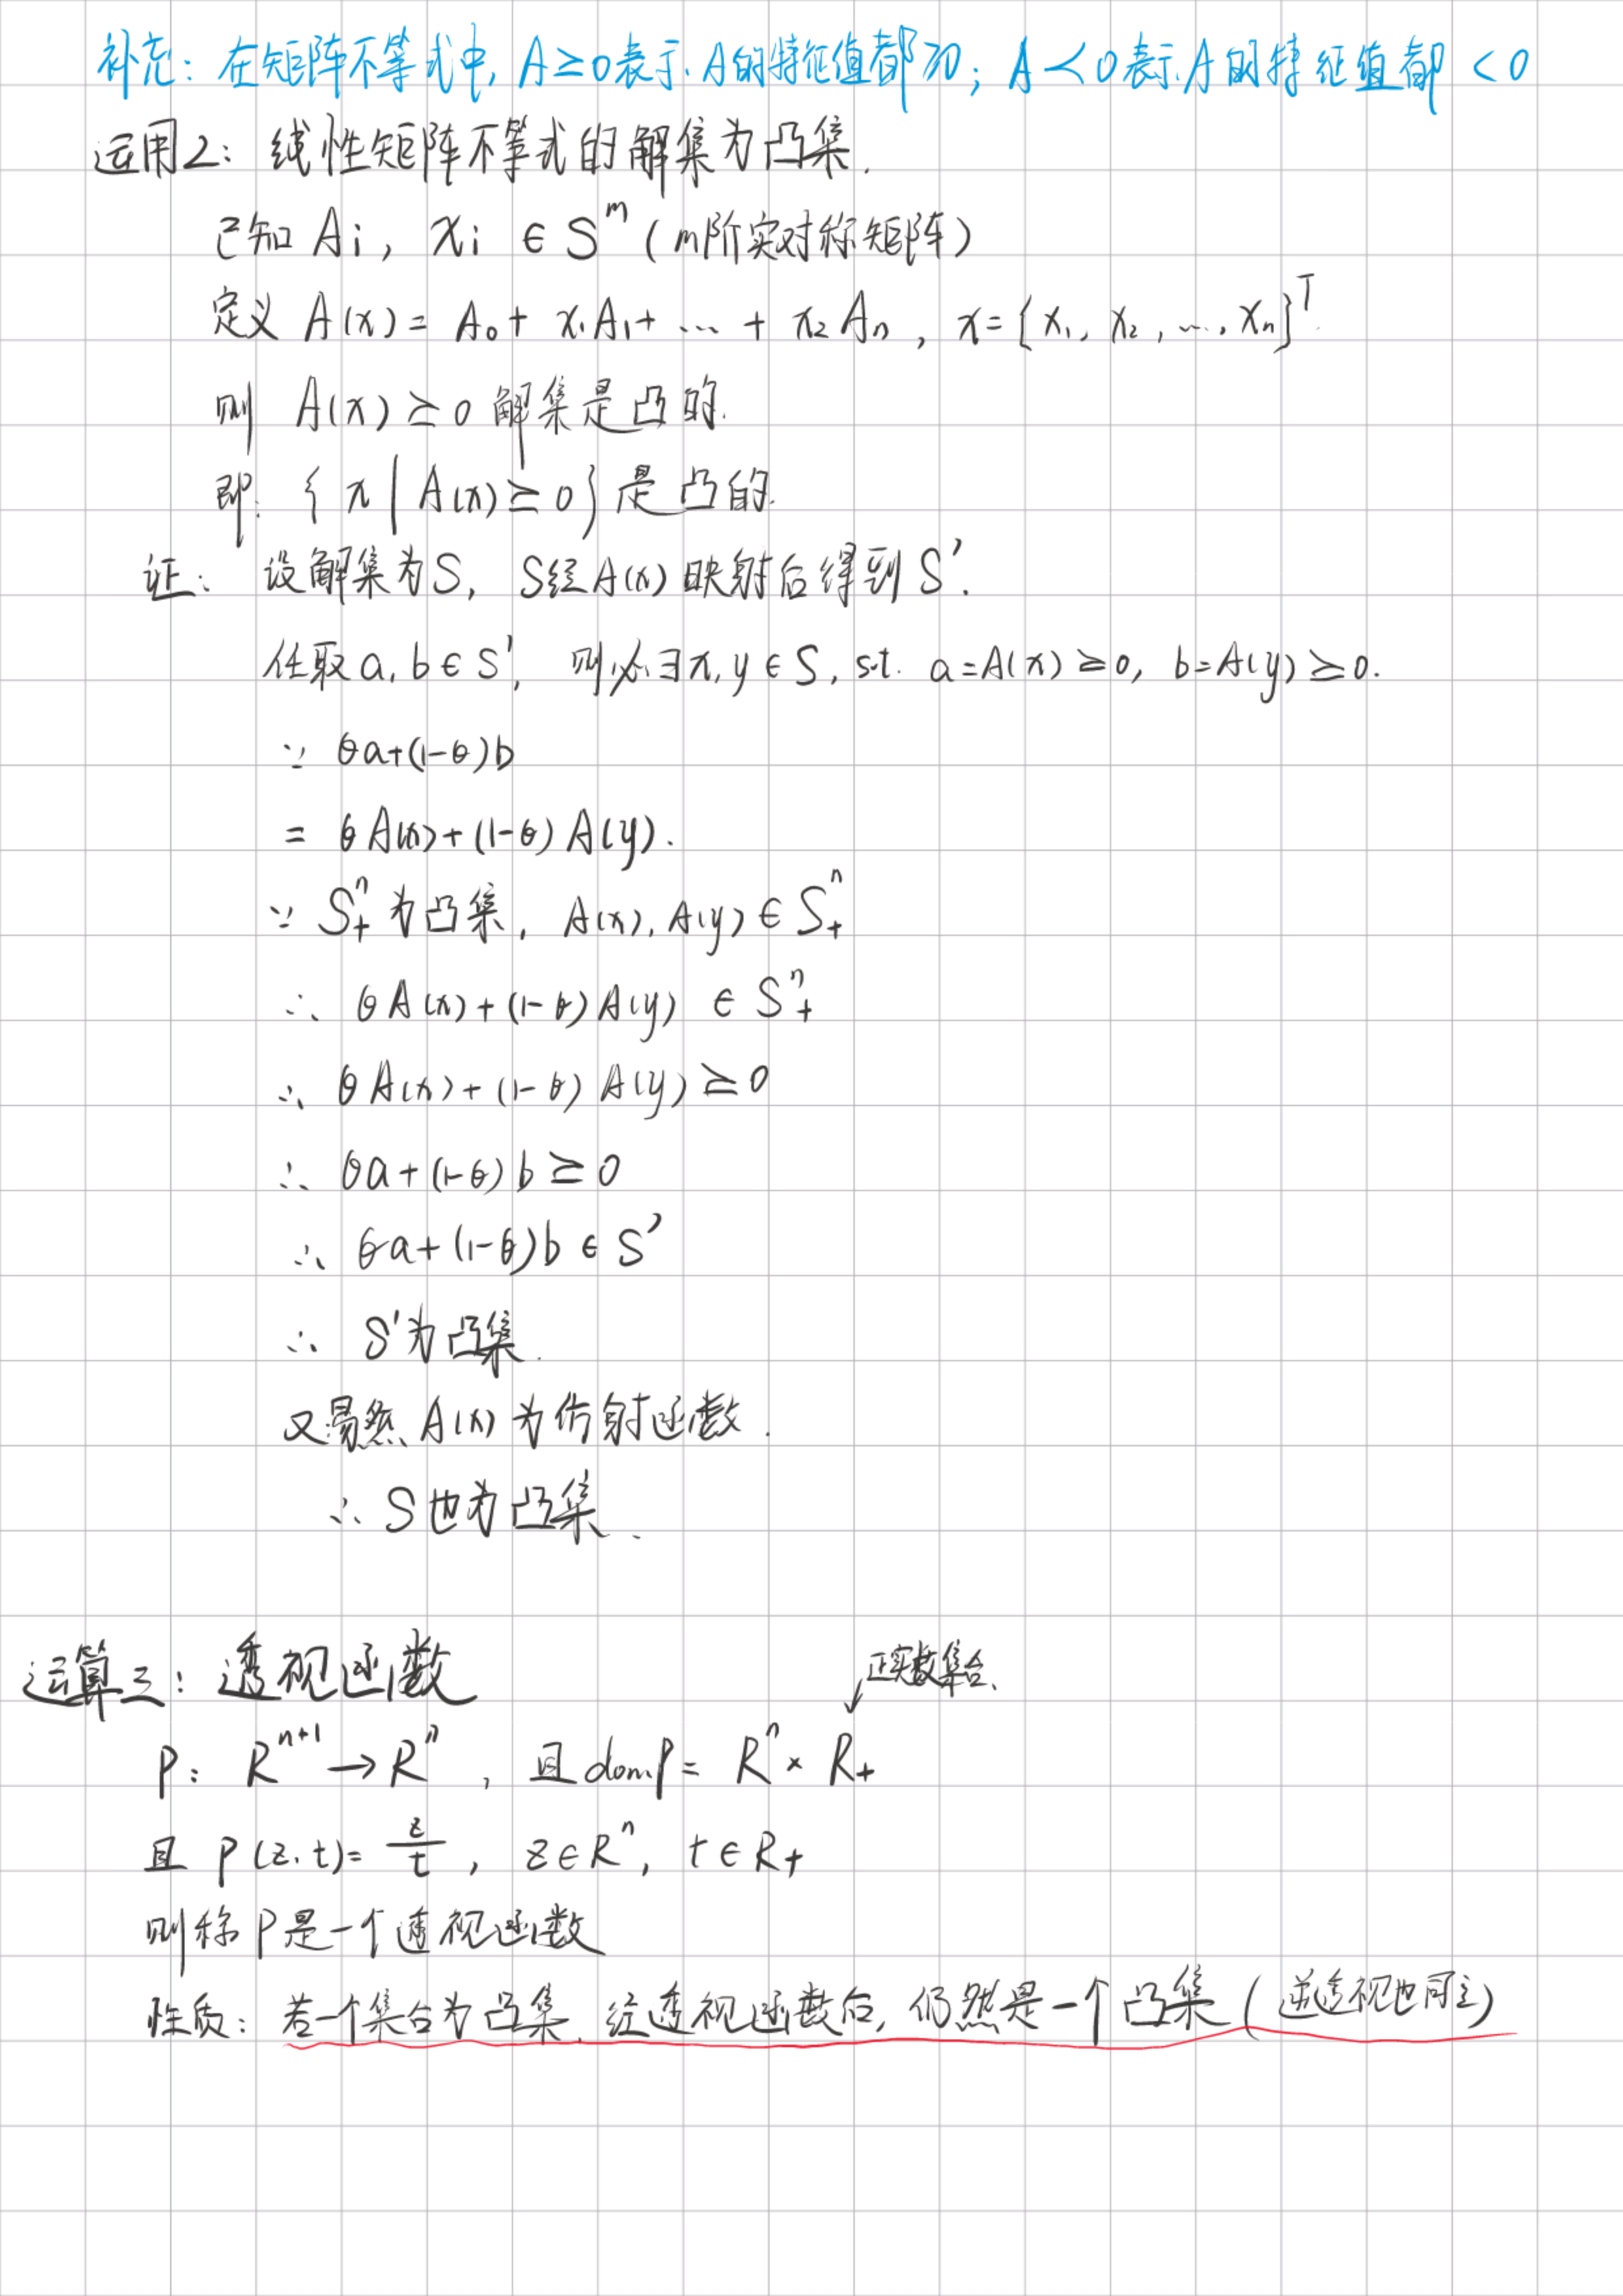 补充：在矩阵不等式中, A≥0表示A的特征值都≥0; A<0表示A的特征值都<0
运用2：线性矩阵不等式的解集为凸集.
已知 Ai, xi ∈ S^m (m阶实对称矩阵)
定义 A(x) = A₀ + x₁A₁ + … + x₂Aₙ, x = [x₁, x₂, …, xₙ]^T
则 A(x) ≥ 0 解集是凸的.
即: {x | A(x) ≥ 0} 是凸的.
证: 设解集为S, S经A(x)映射后得到S'.
任取a, b ∈ S', 则必∃x, y ∈ S, s.t. a=A(x) ≥0, b=A(y) ≥0.
∵ θa+(1-θ)b
= θA(x)+(1-θ)A(y).
∵ S₊ⁿ为凸集, A(x), A(y) ∈ S₊ⁿ
∴ θA(x)+(1-θ)A(y) ∈ S₊ⁿ
∴ θA(x)+(1-θ)A(y) ≥0
∴ θa+(1-θ)b ≥0
∴ θa+(1-θ)b ∈ S'
∴ S'为凸集.
又易然A(x)为仿射函数.
∴ S也为凸集.
运算三：透视函数
正实数集合
P: R^{n+1} → Rⁿ, 且domP = Rⁿ × R₊
且 P(z,t) = z/t, z∈Rⁿ, t∈R₊
则称P是一个透视函数
性质：若一个集合为凸集, 经透视函数后, 仍然是一个凸集(逆透视也同立)